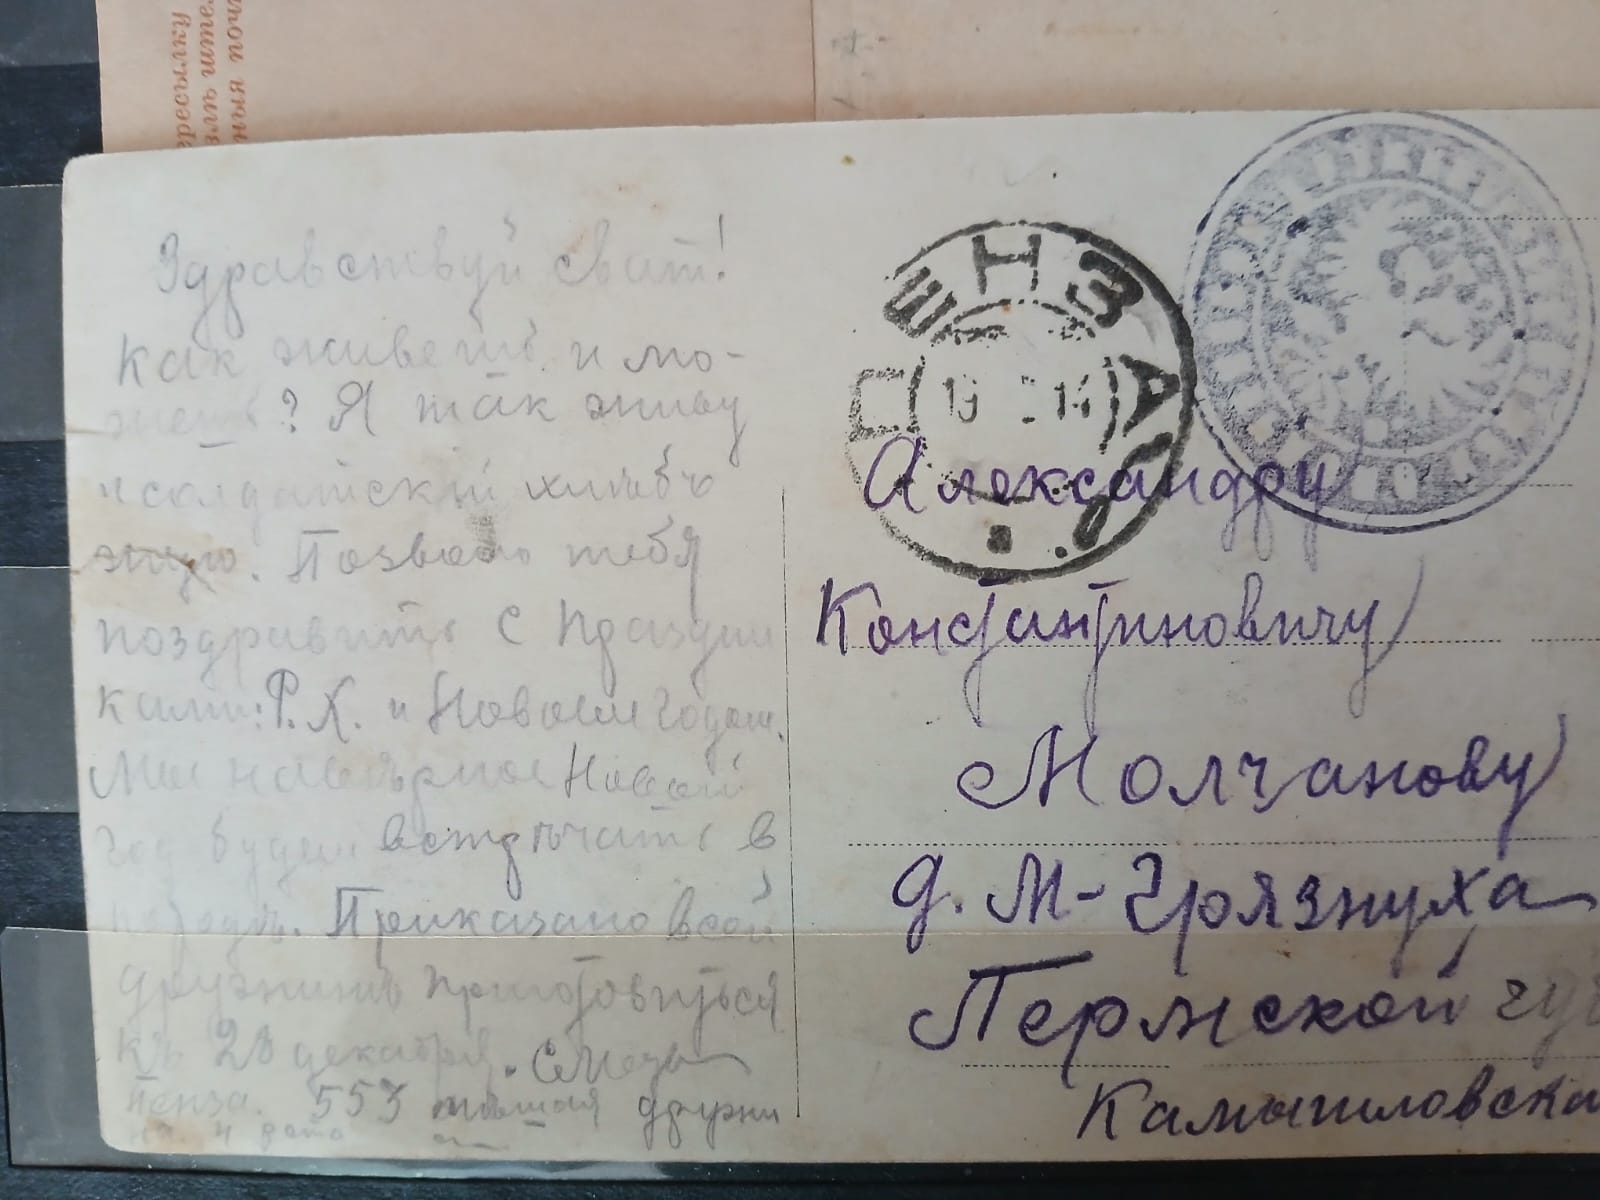 ересылку
ныя поч
Здравствуй сват!
Как живеть и мо-
жеть? Я так живу
и солдатский хлебъ
жую. Позволь тебя
поздравить с Праздни
ками: Р.Х. и Новым годом.
Мы наверное Новой
год будем встречать в
Приказано всей
дружине приготовиться
къ 28 декабря.
Пенза. 553 пешая дружи
на 4 рота
ПЕНЗА
19 14
Александру
Константиновичу
Молчанову
д. М-Грязнуха
Пермской гу
Камышловска